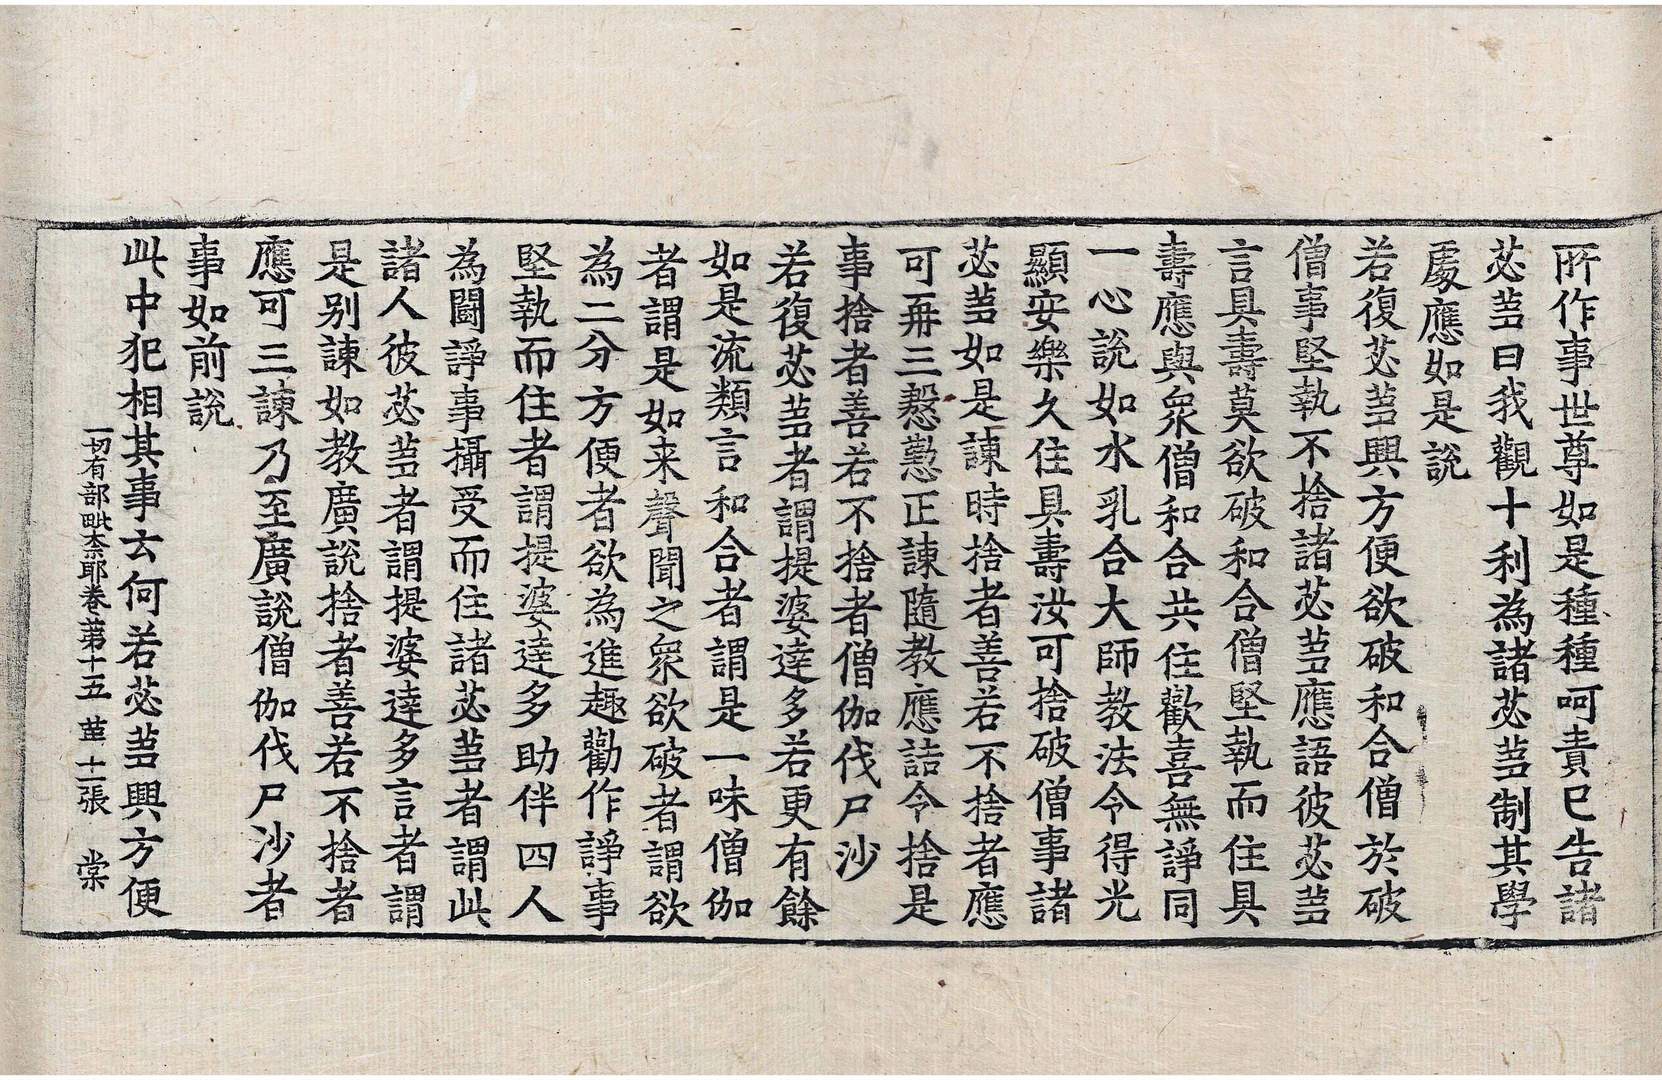 所作事世尊如是種種呵責已告諸
苾芻曰我觀十利為諸苾芻制其學
處應如是說
若復苾芻興方便欲破和合僧於破
僧事堅執不捨諸苾芻應語彼苾芻
言具壽莫欲破和合僧堅執而住具
壽應與衆僧和合共住歡喜無諍同
一心說如水乳合大師教法令得光
顯安樂久住具壽汝可捨破僧事諸
苾芻如是諫時捨者善若不捨者應
可再三慇懃正諫隨教應詰令捨是
事捨者善若不捨者僧伽伐尸沙
若復苾芻者謂提婆達多若更有餘
如是流類言和合者謂是一味僧伽
者謂是如来聲聞之衆欲破者謂欲
為二分方便者欲為進趣勸作諍事
堅執而住者謂提婆達多助伴四人
為鬪諍事攝受而住諸苾芻者謂此
諸人彼苾芻者謂提婆達多言者謂
是别諫如教廣說捨者善若不捨者
應可三諫乃至廣說僧伽伐尸沙者
事如前說
此中犯相其事云何若苾芻興方便
一切有部毗柰耶卷第十五 第十二張 棠